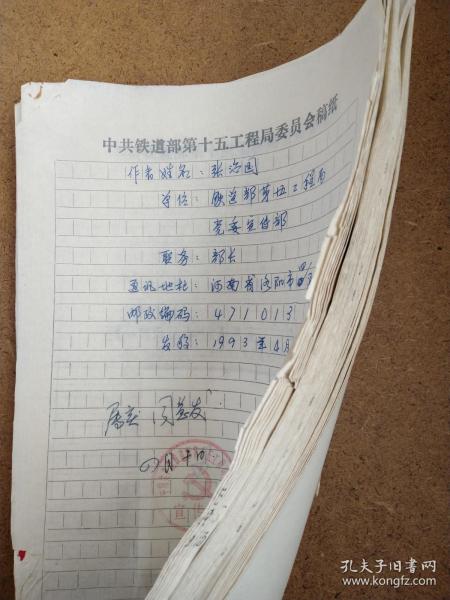 中共铁道部第十五工程局委员会稿纸
作者姓名：张治国
单位：铁道部第十五工程局
党委宣传部
职务：部长
通讯地址：河南省洛阳市
邮政编码：471013
发稿：1993年4月
四月十日
宣
孔夫子旧书网
www.kongfz.com